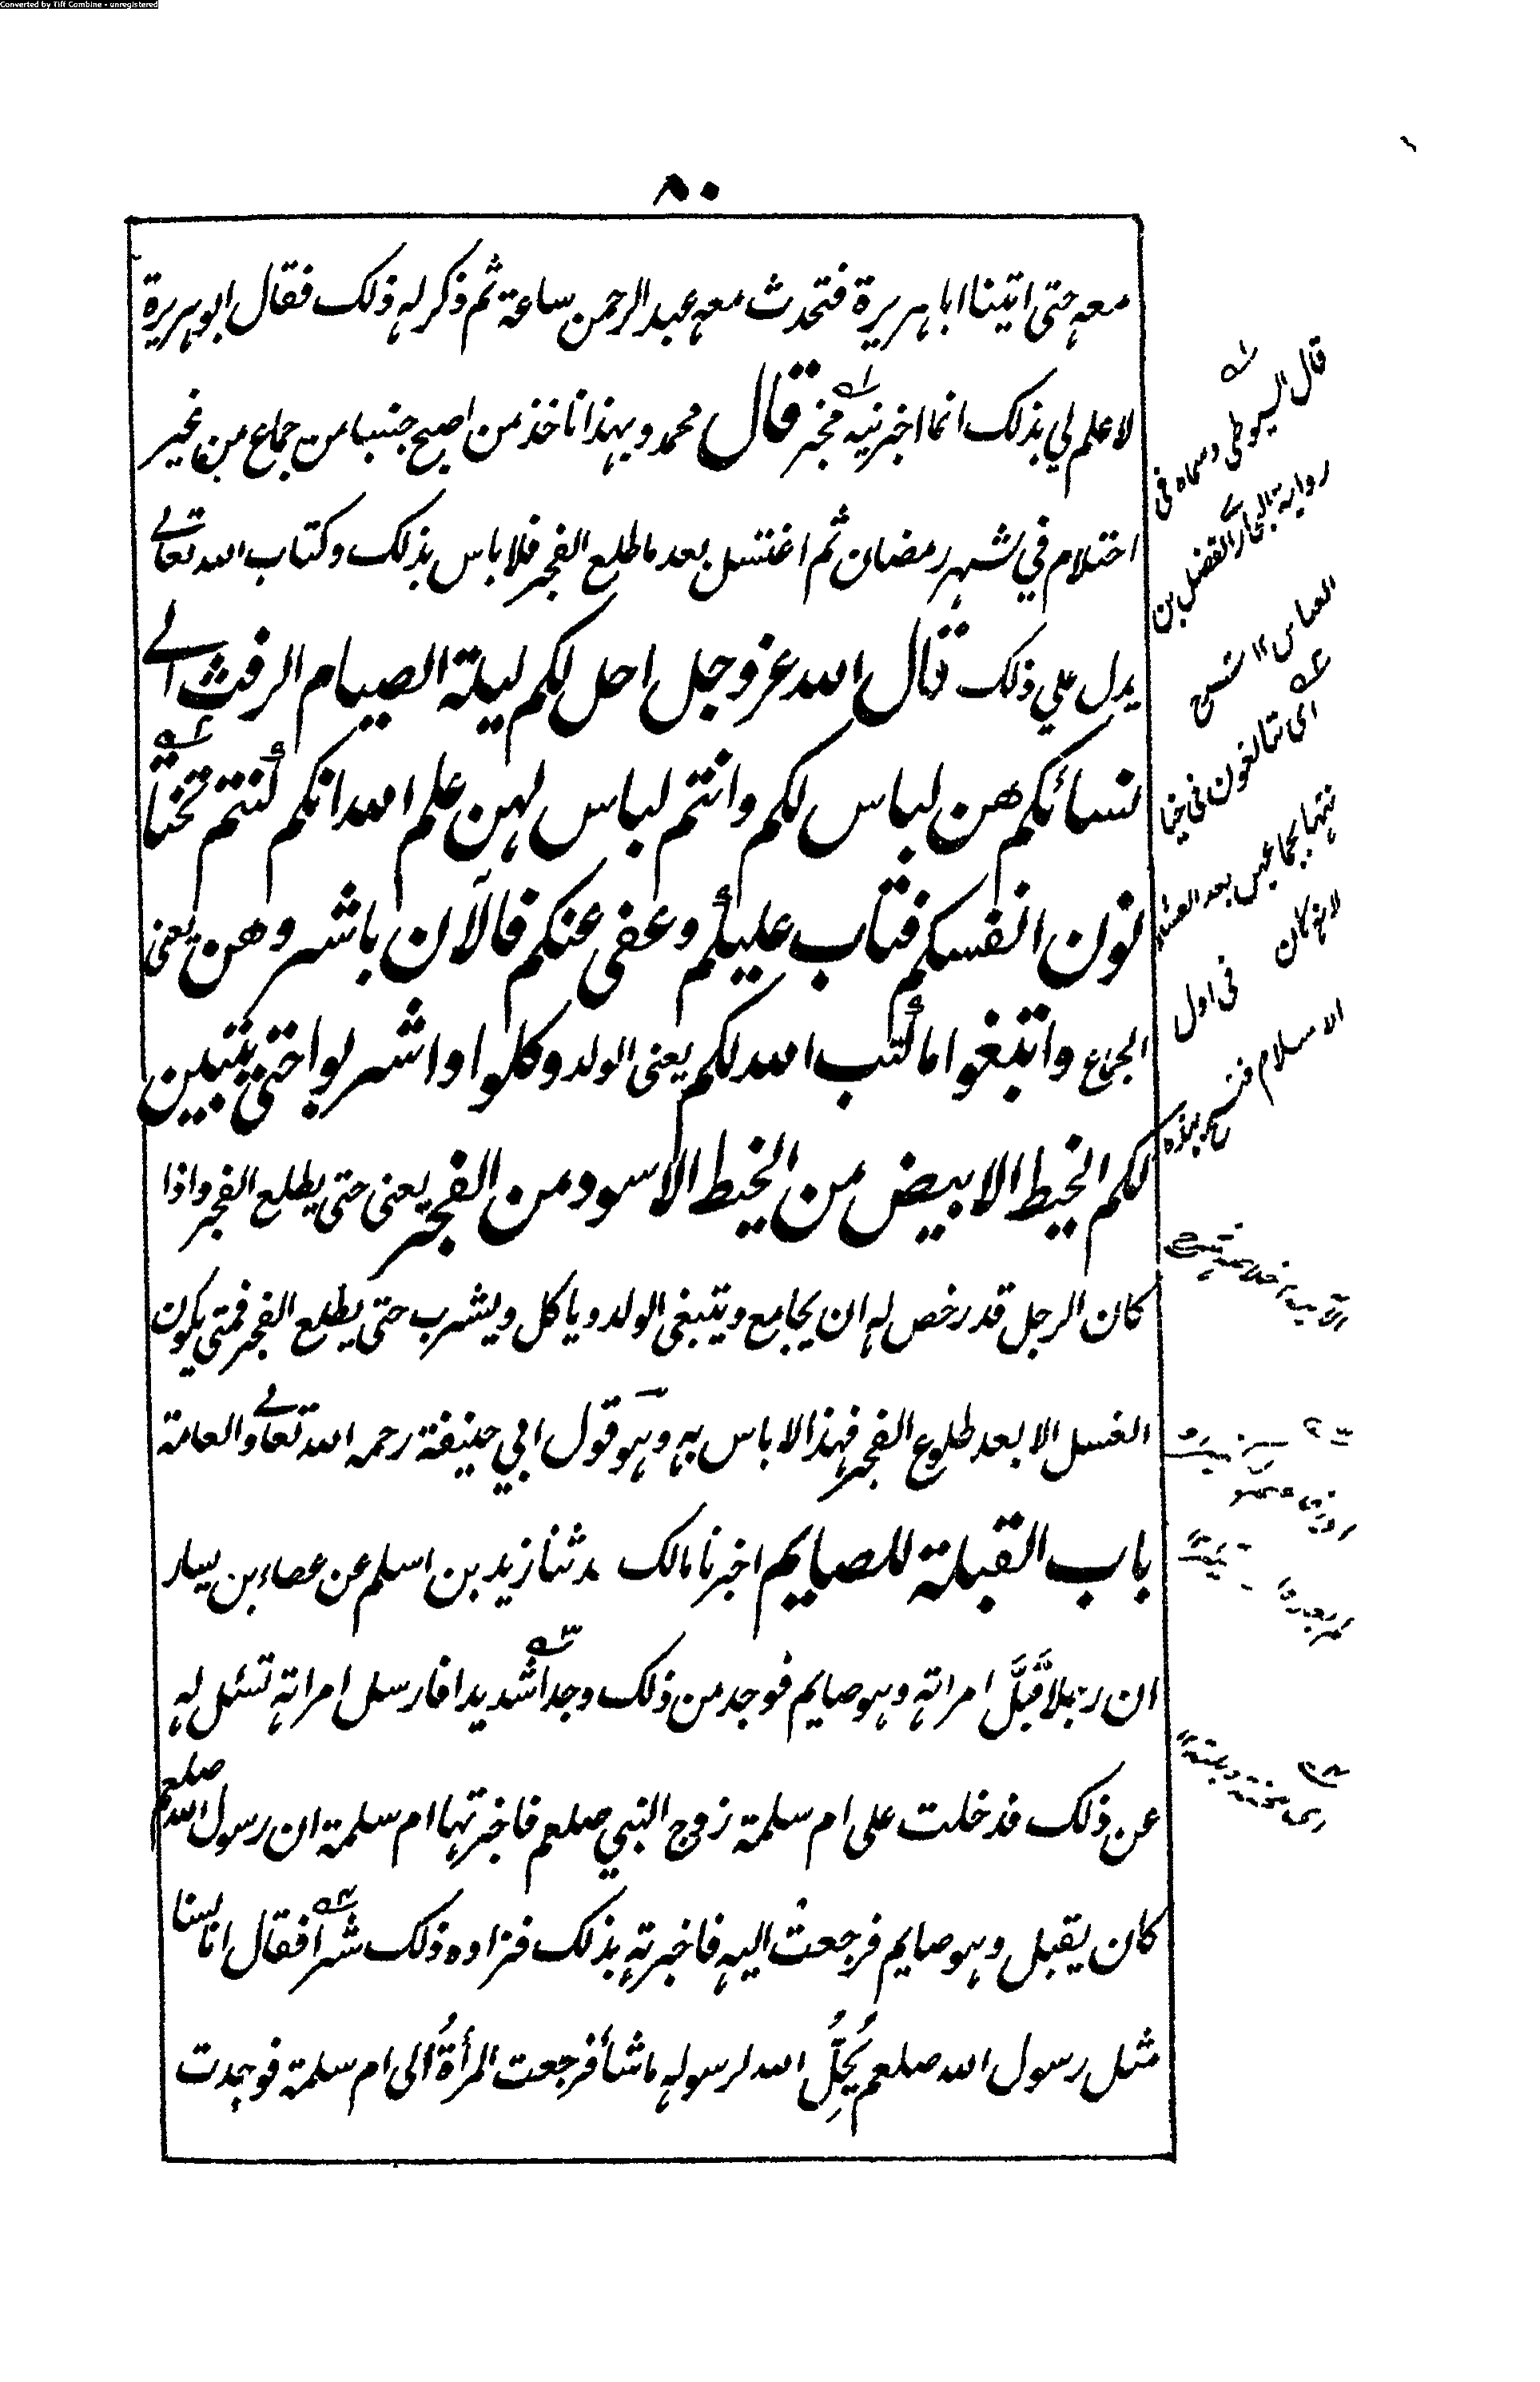 Converted by Tiff Combine - unregistered
٨٠
معه حتى اتينا ابا هريرة فتحدث معه عبد الرحمن ساعة ثم ذكر له ذلك فقال ابو هريرة
لا علم لي بذلك انما اخبرنيه مخبر قال محمد وبهذا ناخذ من اصبح جنبا من جماع من غير
احتلام في شهر رمضان ثم اغتسل بعد ما طلع الفجر فلا باس بذلك وكتاب الله تعالى
يدل علي ذلك قال الله عز وجل احل لكم ليلة الصيام الرفث الى
نسائكم هن لباس لكم وانتم لباس لهن علم الله انكم كنتم تختا
نون انفسكم فتاب عليكم وعفى عنكم فالآن باشروهن يعنى
الجماع وابتغوا ما كتب الله لكم يعنى الولد وكلوا واشربوا حتى يتبين
لكم الخيط الابيض من الخيط الاسود من الفجر يعنى حتى يطلع الفجر واذا
كان الرجل قد رخص له ان يجامع ويتبغى الولد وياكل ويشرب حتى يطلع الفجر فمتى يكون
الغسل الا بعد طلوع الفجر فهذا لا باس به وهو قول ابي حنيفة رحمه الله تعالى والعامة
باب القبلة للصايم اخبرنا مالك حدثنا زيد بن اسلم عن عطاء بن يسار
ان رجلا قَبَّلَ امراته وهو صايم فوجد من ذلك وجدا شديدا فارسل امراته تسئل له
عن ذلك فدخلت على ام سلمة زوج النبي صلعم فاخبرتها ام سلمة ان رسول الله صلعم
كان يقبل وهو صايم فرجعت اليه فاخبرته بذلك فزاده ذلك شرا فقال انا لسنا
مثل رسول الله صلعم يُحِلُّ الله لرسوله ما شأ فرجعت المرأةُ الى ام سلمة فوجدت
قال السيوطى وسماه فى
رواية البخارى الفضل بن
العباس ١٢
اى تبالغون فى خيا
نتها بجماعهن بعد العشاء
لانه كان
فى اول
الاسلام